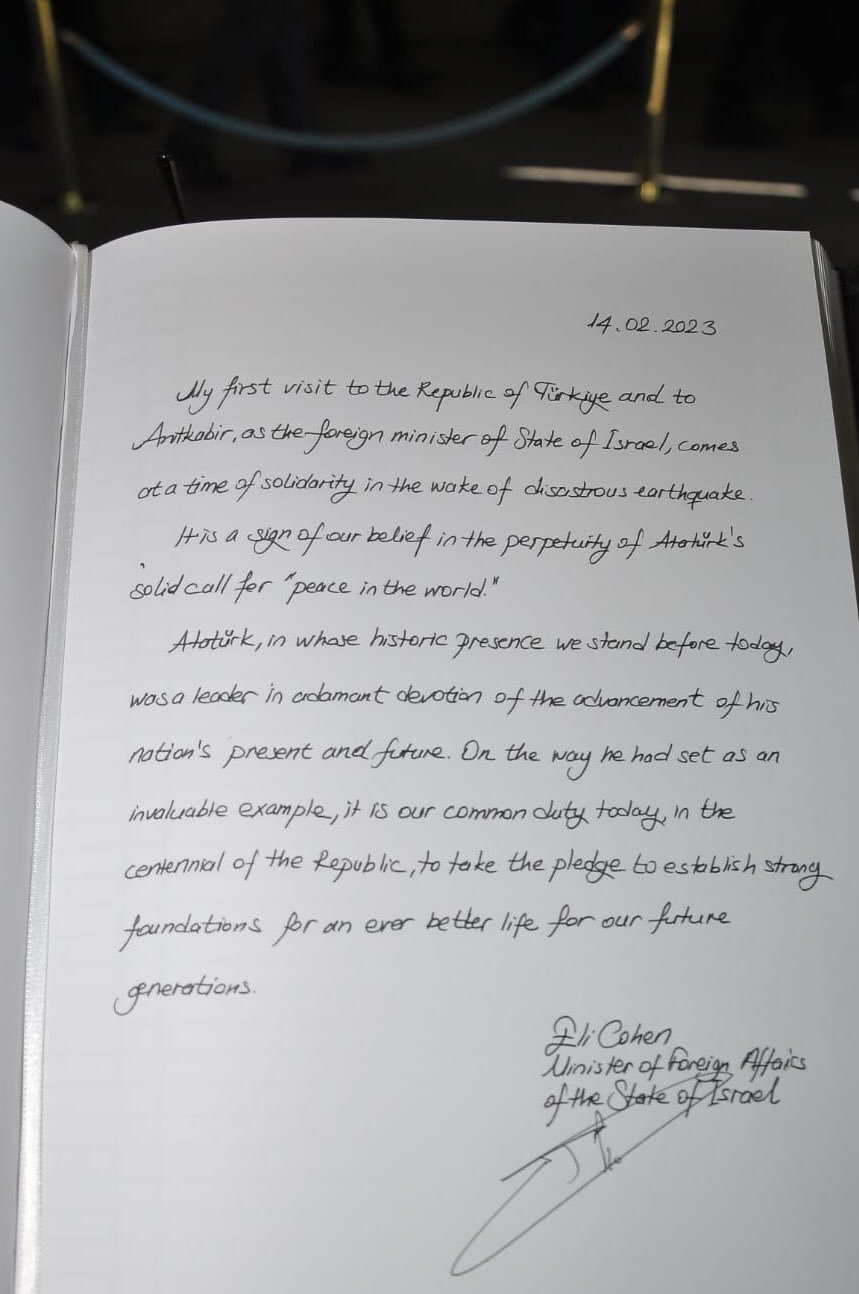 14.02.2023
My first visit to the Republic of Türkiye and to
Anıtkabir, as the foreign minister of State of Israel, comes
at a time of solidarity in the wake of disastrous earthquake.
It is a sign of our belief in the perpetuity of Atatürk's
solid call for "peace in the world."
Atatürk, in whose historic presence we stand before today,
was a leader in adamant devotion of the advancement of his
nation's present and future. On the way he had set as an
invaluable example, it is our common duty today, in the
centennial of the Republic, to take the pledge to establish strong
foundations for an ever better life for our future
generations.
Eli Cohen
Minister of Foreign Affairs
of the State of Israel